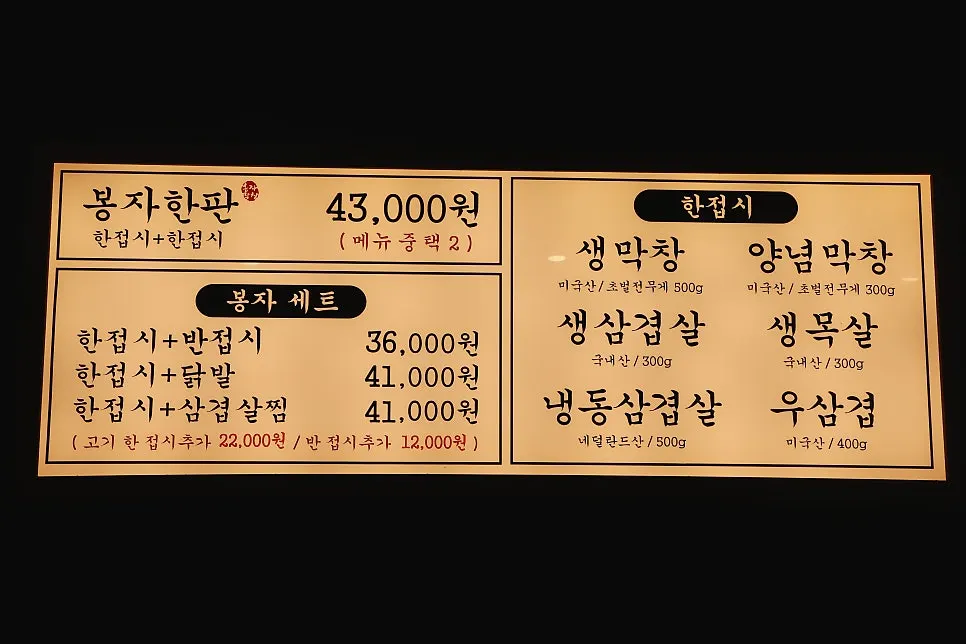 봉자한판 43,000원
한접시+한접시 ( 메뉴 중 택 2 )
봉자 세트
한접시+반접시 36,000원
한접시+닭발 41,000원
한접시+삼겹살찜 41,000원
( 고기 한 접시추가 22,000원 / 반 접시추가 12,000원 )
한접시
생막창 양념막창
미국산 / 초벌전무게 500g 미국산 / 초벌전무게 300g
생삼겹살 생목살
국내산 / 300g 국내산 / 300g
냉동삼겹살 우삼겹
네덜란드산 / 500g 미국산 / 400g